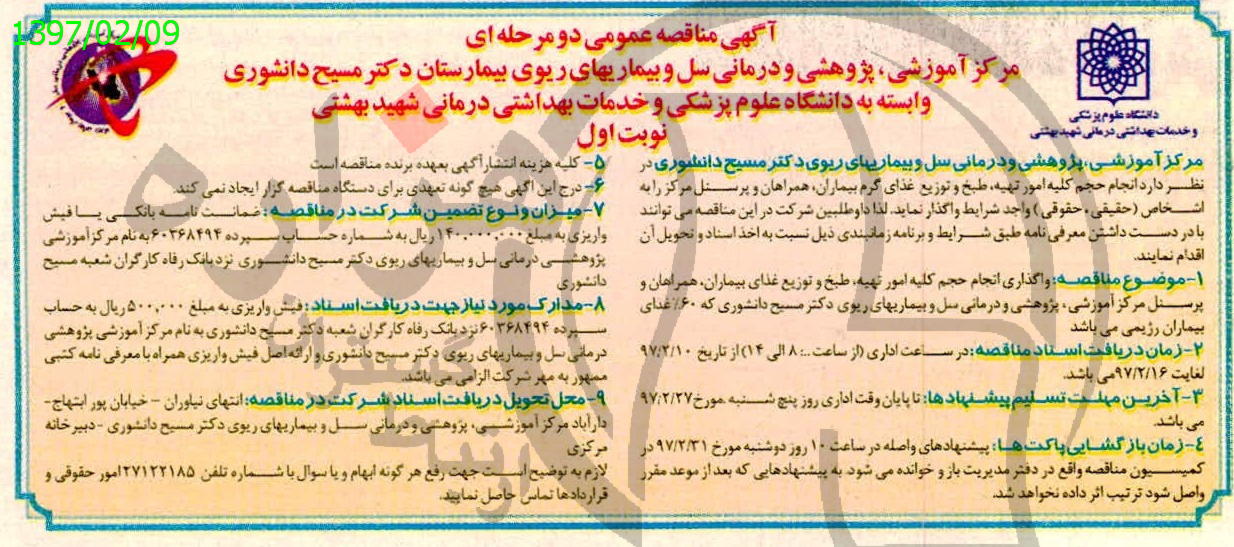 1397/02/09
آگهی مناقصه عمومی دو مرحله ای
مرکز آموزشی، پژوهشی و درمانی سل و بیماریهای ریوی بیمارستان دکتر مسیح دانشوری
وابسته به دانشگاه علوم پزشکی و خدمات بهداشتی درمانی شهید بهشتی
نوبت اول
دانشگاه علوم پزشکی
و خدمات بهداشتی درمانی شهید بهشتی
مرکز آموزشی، پژوهشی و درمانی سل و بیماریهای ریوی دکتر مسیح دانشوری در
نظر دارد انجام حجم کلیه امور تهیه، طبخ و توزیع غذای گرم بیماران، همراهان و پرسنل مرکز را به
اشخاص (حقیقی، حقوقی) واجد شرایط واگذار نماید. لذا داوطلبین شرکت در این مناقصه می توانند
با در دست داشتن معرفی نامه طبق شرایط و برنامه زمانبندی ذیل نسبت به اخذ اسناد و تحویل آن
اقدام نمایند.
۱-موضوع مناقصه: واگذاری انجام حجم کلیه امور تهیه، طبخ و توزیع غذای بیماران، همراهان و
پرسنل مرکز آموزشی، پژوهشی و درمانی سل و بیماریهای ریوی دکتر مسیح دانشوری که ۶۰٪ غذای
بیماران رژیمی می باشد
۲-زمان دریافت اسناد مناقصه: در ساعت اداری (از ساعت ۸:۰۰ الی ۱۴) از تاریخ ۹۷/۲/۱۰
لغایت ۹۷/۲/۱۶ می باشد.
۳-آخرین مهلت تسلیم پیشنهادها: تا پایان وقت اداری روز پنج شنبه مورخ ۹۷/۲/۲۷
می باشد.
۴-زمان بازگشایی پاکت ها: پیشنهادهای واصله در ساعت ۱۰ روز دوشنبه مورخ ۹۷/۲/۳۱ در
کمیسیون مناقصه واقع در دفتر مدیریت باز و خوانده می شود. به پیشنهادهایی که بعد از موعد مقرر
واصل شود ترتیب اثر داده نخواهد شد.
۵- کلیه هزینه انتشار آگهی بعهده برنده مناقصه است
۶- درج این آگهی هیچ گونه تعهدی برای دستگاه مناقصه گزار ایجاد نمی کند.
۷-میزان و نوع تضمین شرکت در مناقصه: ضمانت نامه بانکی یا فیش
واریزی به مبلغ ۱۴۰۰,۰۰۰,۰۰۰ ریال به شماره حساب سپرده ۶۰۳۶۸۴۹۴ به نام مرکز آموزشی
پژوهشی درمانی سل و بیماریهای ریوی دکتر مسیح دانشوری نزد بانک رفاه کارگران شعبه مسیح
دانشوری
۸-مدارک مورد نیاز جهت دریافت اسناد: فیش واریزی به مبلغ ۵۰۰,۰۰۰ ریال به حساب
سپرده ۶۰۳۶۸۴۹۴ نزد بانک رفاه کارگران شعبه دکتر مسیح دانشوری به نام مرکز آموزشی پژوهشی
درمانی سل و بیماریهای ریوی دکتر مسیح دانشوری و ارائه اصل فیش واریزی همراه با معرفی نامه کتبی
ممهور به مهر شرکت الزامی می باشد.
۹-محل تحویل دریافت اسناد شرکت در مناقصه: انتهای نیاوران - خیابان پور ابتهاج-
دارآباد مرکز آموزشی، پژوهشی و درمانی سل و بیماریهای ریوی دکتر مسیح دانشوری -دبیرخانه
مرکزی
لازم به توضیح است جهت رفع هر گونه ابهام و یا سوال با شماره تلفن ۲۷۱۲۲۱۸۵ امور حقوقی و
قراردادها تماس حاصل نمایید.